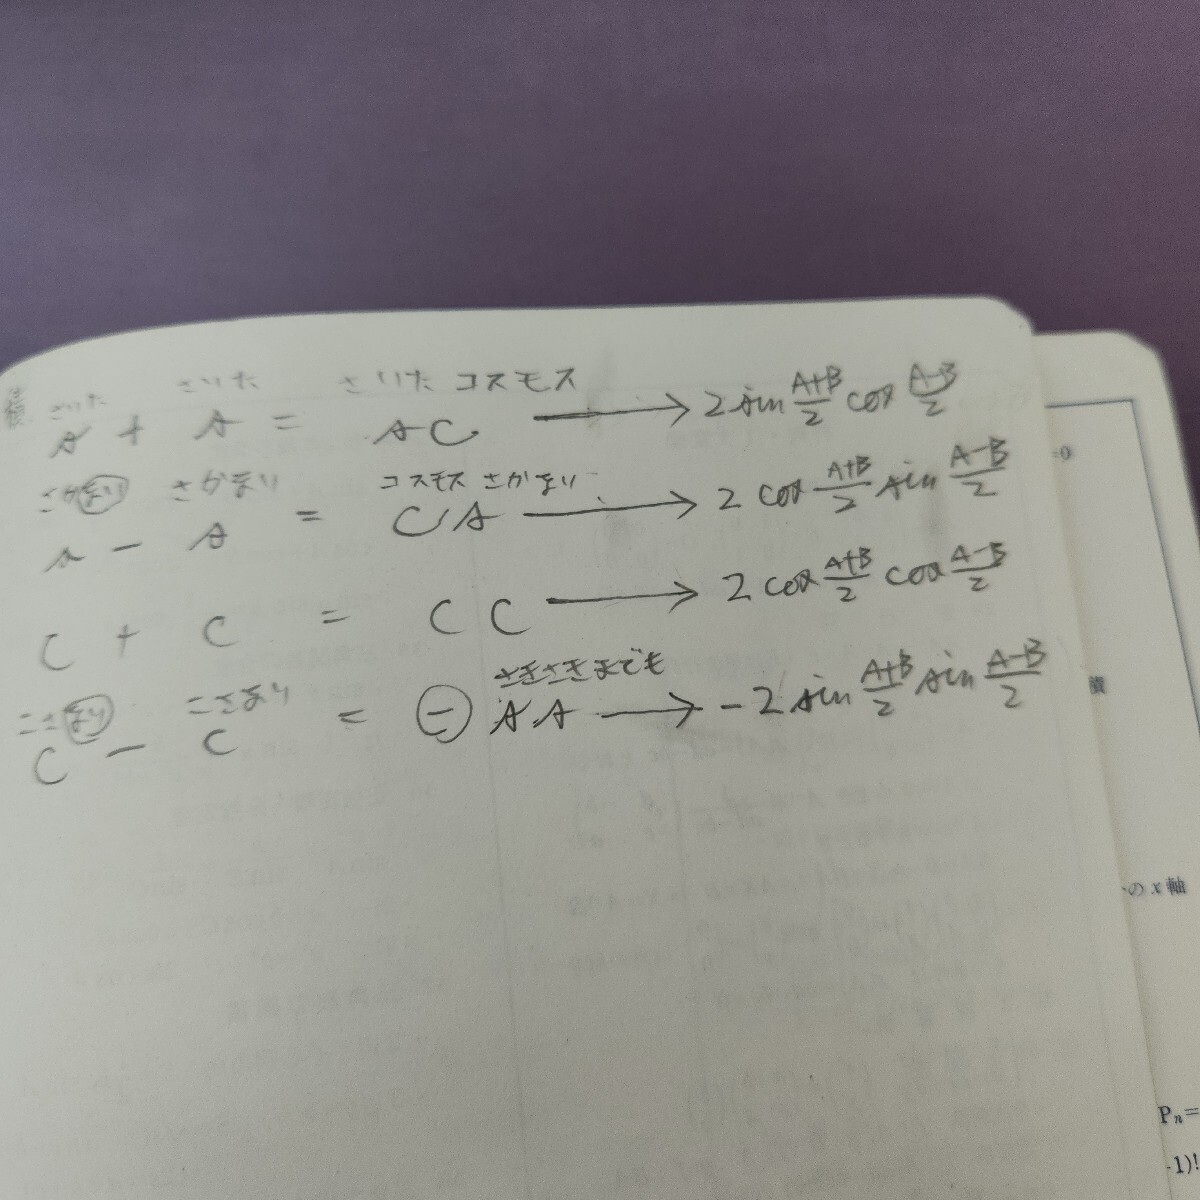 積
さいた さいた さいた コスモス
s + s = s c → 2 sin A+B/2 cos A-B/2
さかまり さかまり コスモス さかまり
s - s = c s → 2 cos A+B/2 sin A-B/2
c + c = c c → 2 cos A+B/2 cos A-B/2
ここさまり ここさまり さきさきまでも
c - c = ⊖ s s → -2 sin A+B/2 sin A-B/2
=0
積
のx軸
Pn=
-1)!